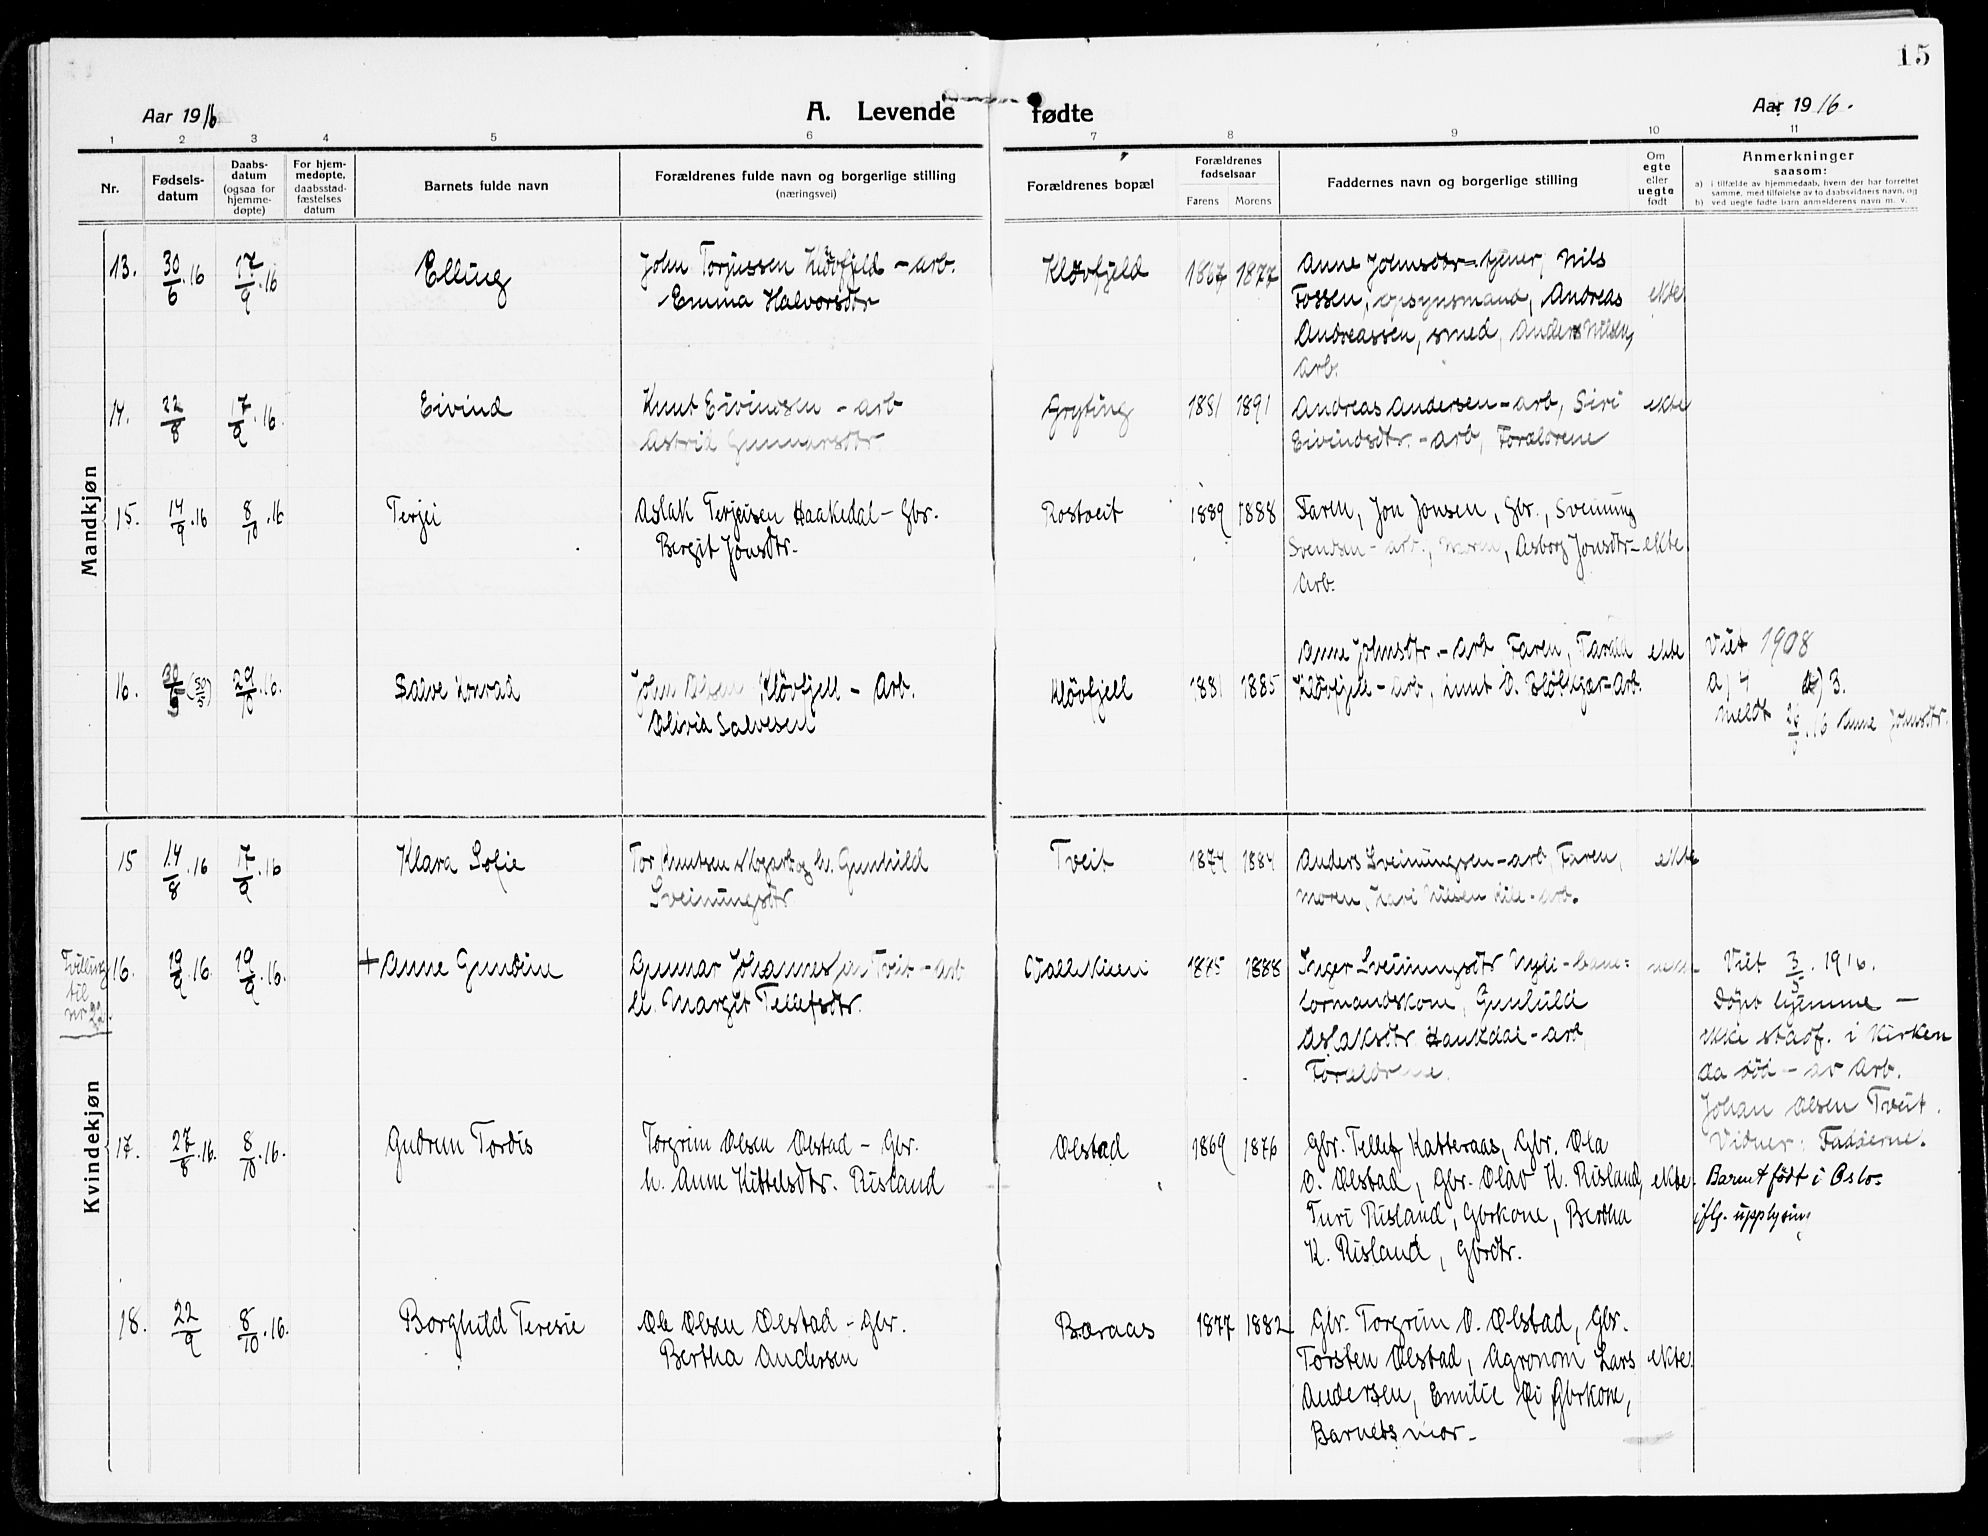 15
Aar 1916
A. Levende fødte
Aar 1916.
1 2 3 4 5 6 7 8 9 10 11
Nr.
Fødsels-
datum
Daabs-
datum
(ogsaa for
hjemme-
døpte)
For hjem-
medøpte,
daabsstad-
fæstelses
datum
Barnets fulde navn
Forældrenes fulde navn og borgerlige stilling
(næringsvei)
Forældrenes bopæl
Forældrenes
fødselsaar
Farens Morens
Faddernes navn og borgerlige stilling
Om
egte
eller
uegte
født
Anmerkninger
saasom:
a) i tilfælde av hjemmedaab, hvem der har forrettet
samme, med tilføielse av to daabsvidners navn, og
b) ved uegte fødte barn anmelderens navn m. v.
Mandkjøn
13. 30/6.16 17/9.16 Elling
John Torjussen Kløvfjeld - arb.
Emma Halvorsdtr
Kløvfjeld 1867 1877
Anne Johnsdtr - tjener, Nils
Fossen, opsynsmand, Andreas
Andreassen, smed, Anders Nilsen,
arb.
ekte
14. 22/8 17/9.16. Eivind
Knut Eivindsen - arb
Astrid Gunnarsdtr
Gryting 1881 1891
Andreas Andersen - arb, Siri
Eivindsdtr. - arb, Forældrene
ekte
15. 14/9.16 8/10.16 Terjei
Aslak Terjeisen Haakedal - Gbr.
Bergit Jonsdtr.
Rostveit 1889 1888
Faren, Jon Jonsen, Gbr., Sveinung
Svendsen - arb., Moren, Asborg Jonsdtr -
Arb.
ekte.
16. 30/5 (30/5) 29/10.16. Salve Konrad
John Olsen Kløvfjell - Arb.
Olivia Salvesen
Kløvfjell 1881 1885
Anne Johnsdtr. - arb Faren, Tarald
Kløvfjell - arb, Knut O. - Arb.
ekte
Viet 1908
a) 4 3.
meldt .16 Anne Johnsdtr.
Kvindekjøn
15 14/8.16 17/9.16 Klara Sofie
Tor Knutsen og h. Gunhild
Sveinungsdtr
Tveit 1874 1884
Anders Sveinungsen - arb, Faren,
Moren, Kari Nilsen - arb.
ekte
Tvilling
til
nr.
16. 19/9.16. 19/9.16. + Anne Gundine
Gunnar Johannesen Tveit - arb
h. Margit Tellefsdtr.
Vallekleiv 1875 1888
Inger Sveinungsdtr - bane-
formandskone, Gunhild
Aslaksdtr - arb,
Forældrene.
Viet 3/5. 1916.
Døpt hjemme -
ikke stadf. i kirken
da død - av Arb.
Johan Olsen Tveit.
Vidner: Fadderne.
17. 27/8.16. 8/10.16. Gudrun Tordis
Torgrim Ølstad - Gbr.
h. Anne Kittelsdtr. Risland
Ølstad 1869 1876
Gbr. Tellef Katteraas, Gbr. Ola
O. Ølstad, Gbr. Olav K. Risland,
Turi Risland, Gbrkone, Bertha
K. Risland, Gbrdtr.
ekte.
Barnet født i Oslo
iflg. upplysning
18. 22/9 8/10.16. Borghild Teresie
Ole Olsen Ølstad - Gbr.
Bertha Andersen
Børaas 1877 1882
Gbr. Torgrim O. Ølstad, Gbr.
Torsten Ølstad, Agronom Lars
Andersen, Emilie Gbrkone,
Barnets mor -
ekte